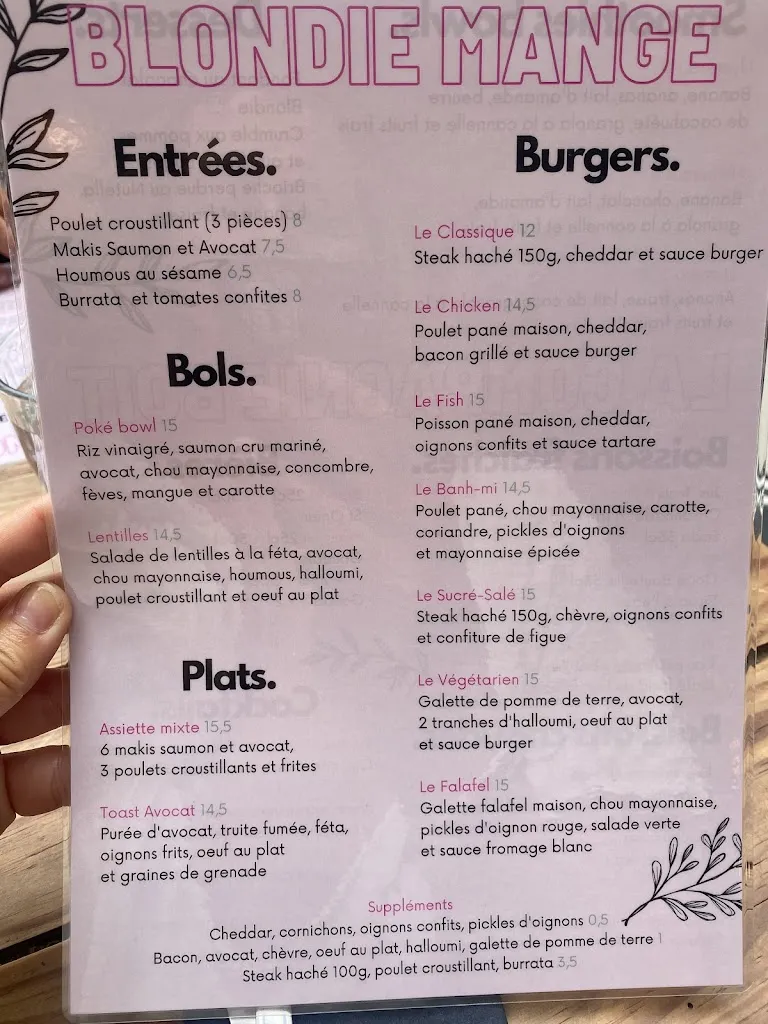 BLONDIE MANGE
Entrées.
Poulet croustillant (3 pièces) 8
Makis Saumon et Avocat 7,5
Houmous au sésame 6,5
Burrata et tomates confites 8
Bols.
Poké bowl 15
Riz vinaigré, saumon cru mariné,
avocat, chou mayonnaise, concombre,
fèves, mangue et carotte
Lentilles 14,5
Salade de lentilles à la féta, avocat,
chou mayonnaise, houmous, halloumi,
poulet croustillant et oeuf au plat
Plats.
Assiette mixte 15,5
6 makis saumon et avocat,
3 poulets croustillants et frites
Toast Avocat 14,5
Purée d'avocat, truite fumée, féta,
oignons frits, oeuf au plat
et graines de grenade
Burgers.
Le Classique 12
Steak haché 150g, cheddar et sauce burger
Le Chicken 14,5
Poulet pané maison, cheddar,
bacon grillé et sauce burger
Le Fish 15
Poisson pané maison, cheddar,
oignons confits et sauce tartare
Le Banh-mi 14,5
Poulet pané, chou mayonnaise, carotte,
coriandre, pickles d'oignons
et mayonnaise épicée
Le Sucré-Salé 15
Steak haché 150g, chèvre, oignons confits
et confiture de figue
Le Végétarien 15
Galette de pomme de terre, avocat,
2 tranches d'halloumi, oeuf au plat
et sauce burger
Le Falafel 15
Galette falafel maison, chou mayonnaise,
pickles d'oignon rouge, salade verte
et sauce fromage blanc
Suppléments
Cheddar, cornichons, oignons confits, pickles d'oignons 0,5
Bacon, avocat, chèvre, oeuf au plat, halloumi, galette de pomme de terre 1
Steak haché 100g, poulet croustillant, burrata 3,5